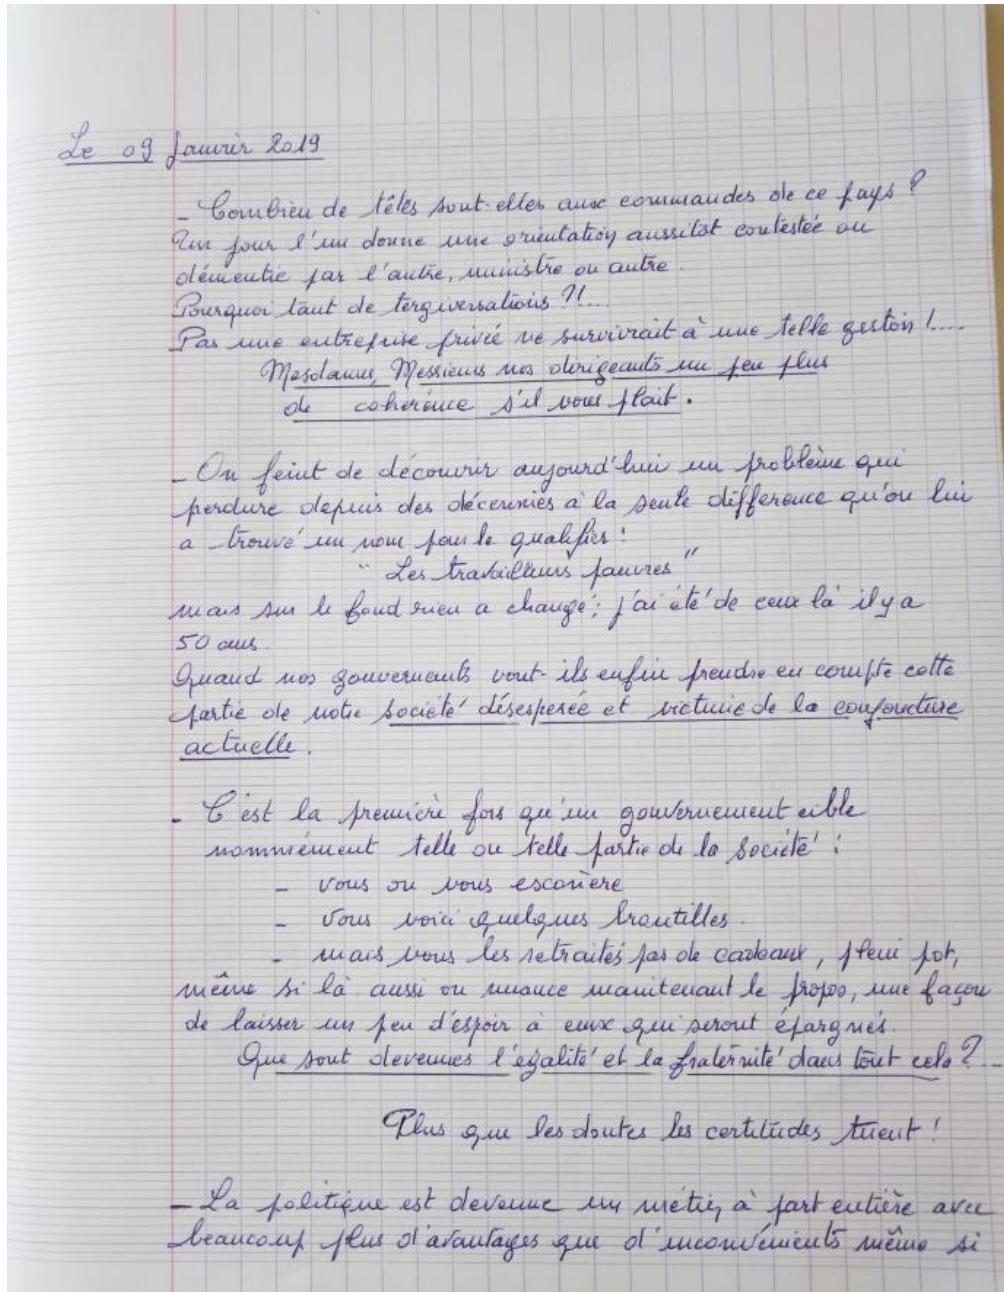 Le 09 Janvier 2019
- Combien de têtes sont-elles aux commandes de ce pays ?
Un jour l'un donne une orientation aussitôt contestée ou
démentie par l'autre, ministre ou autre.
Pourquoi tant de tergiversations ?!...
Pas une entreprise privée ne survivrait à une telle gestion !....
Mesdames, Messieurs nos dirigeants un peu plus
de cohérence s'il vous plait.
- On feint de découvrir aujourd'hui un problème qui
perdure depuis des décennies à la seule différence qu'on lui
a trouvé un nom pour le qualifier :
"Les travailleurs pauvres"
mais sur le fond rien a changé ; j'ai été de ceux là il y a
50 ans.
Quand nos gouvernants vont-ils enfin prendre en compte cette
partie de notre société désespérée et victime de la conjoncture
actuelle.
- C'est la première fois qu'un gouvernement cible
nommément telle ou telle partie de la société :
- vous on vous exonère
- vous voici quelques broutilles.
- mais vous les retraités pas de cadeaux, plein pot,
même si là aussi on nuance maintenant le propos, une façon
de laisser un peu d'espoir à ceux qui seront épargnés.
Que sont devenues l'égalité et la fraternité dans tout cela ?...
Plus que les doutes les certitudes tuent !
- La politique est devenue un métier à part entière avec
beaucoup plus d'avantages que d'inconvénients même si